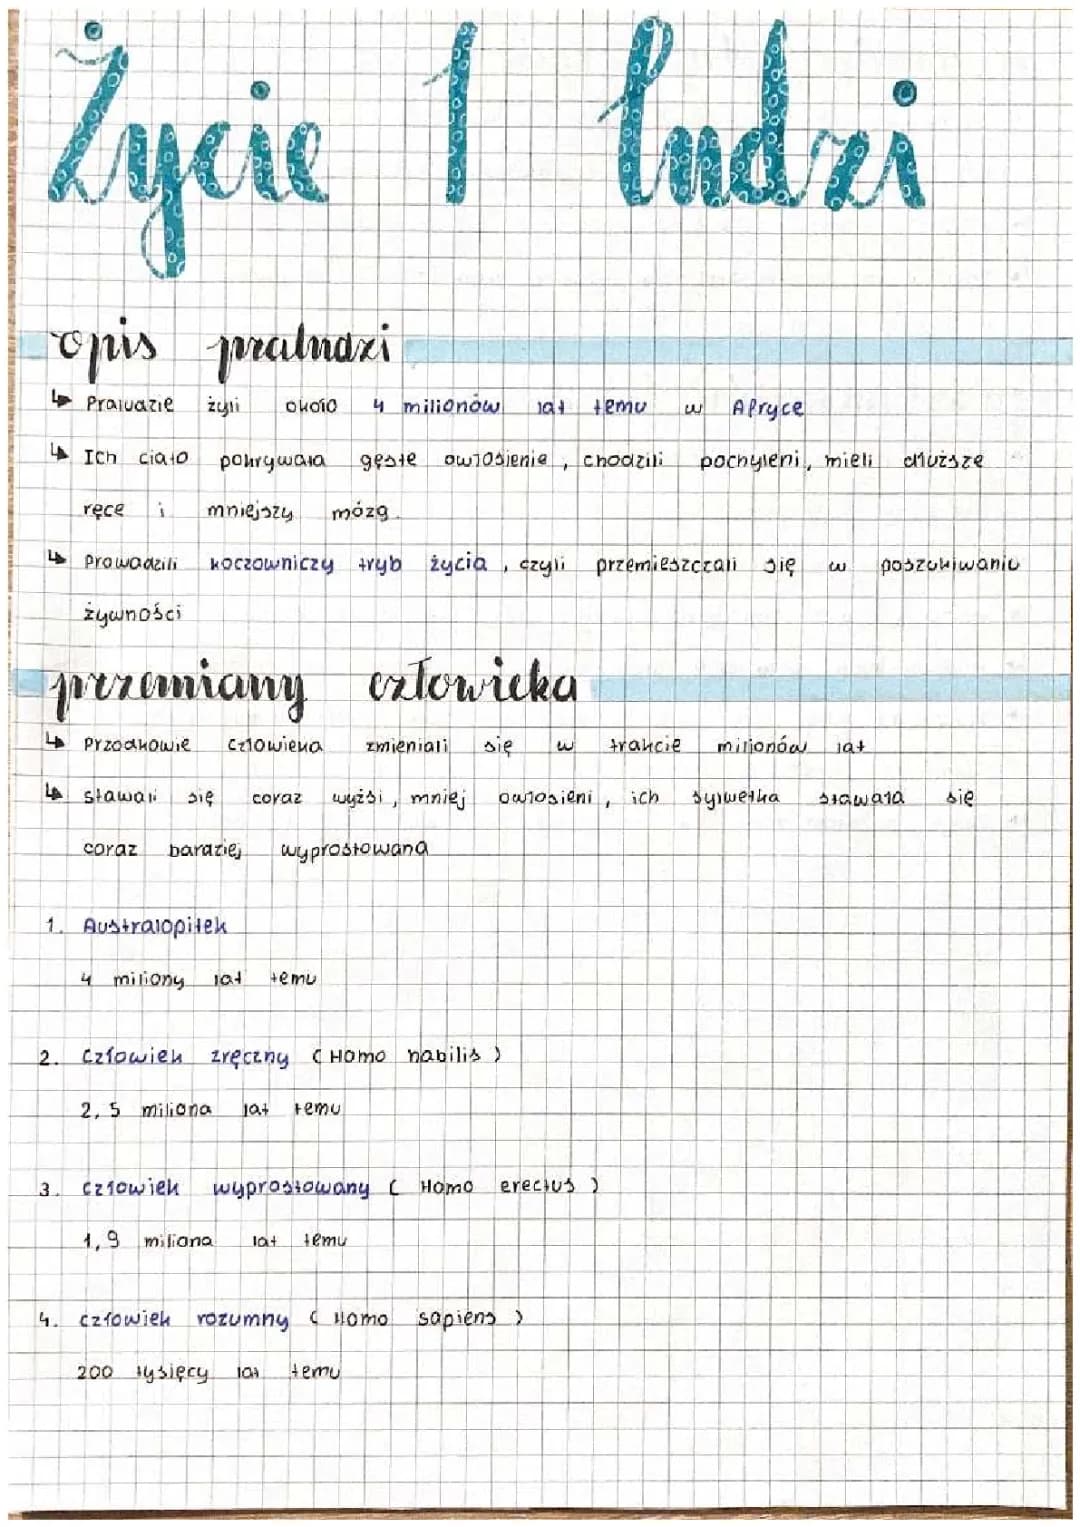 Życie 1 ludzi
opis praludzi
↳ Praludzie żyli około 4 milionów lat temu w Afryce
↳ Ich ciało pokrywała gęste owłosienie, chodzili pochyleni, mieli dłuższe
ręce i mniejszy mózg.
↳ Prowadzili koczowniczy tryb życia, czyli przemieszczali się w poszukiwaniu
żywności
przemiany człowieka
↳ Przodkowie człowieka zmieniali się w trakcie milionów lat
↳ stawali się coraz wyżsi, mniej owłosieni, ich sylwetka stawała się
coraz bardziej wyprostowana
1. Australopitek
4 miliony lat temu
2. Człowiek zręczny (Homo habilis)
2,5 miliona lat temu
3. człowiek wyprostowany (Homo erectus)
1,9 miliona lat temu
4. człowiek rozumny (Homo sapiens)
200 tysięcy lat temu